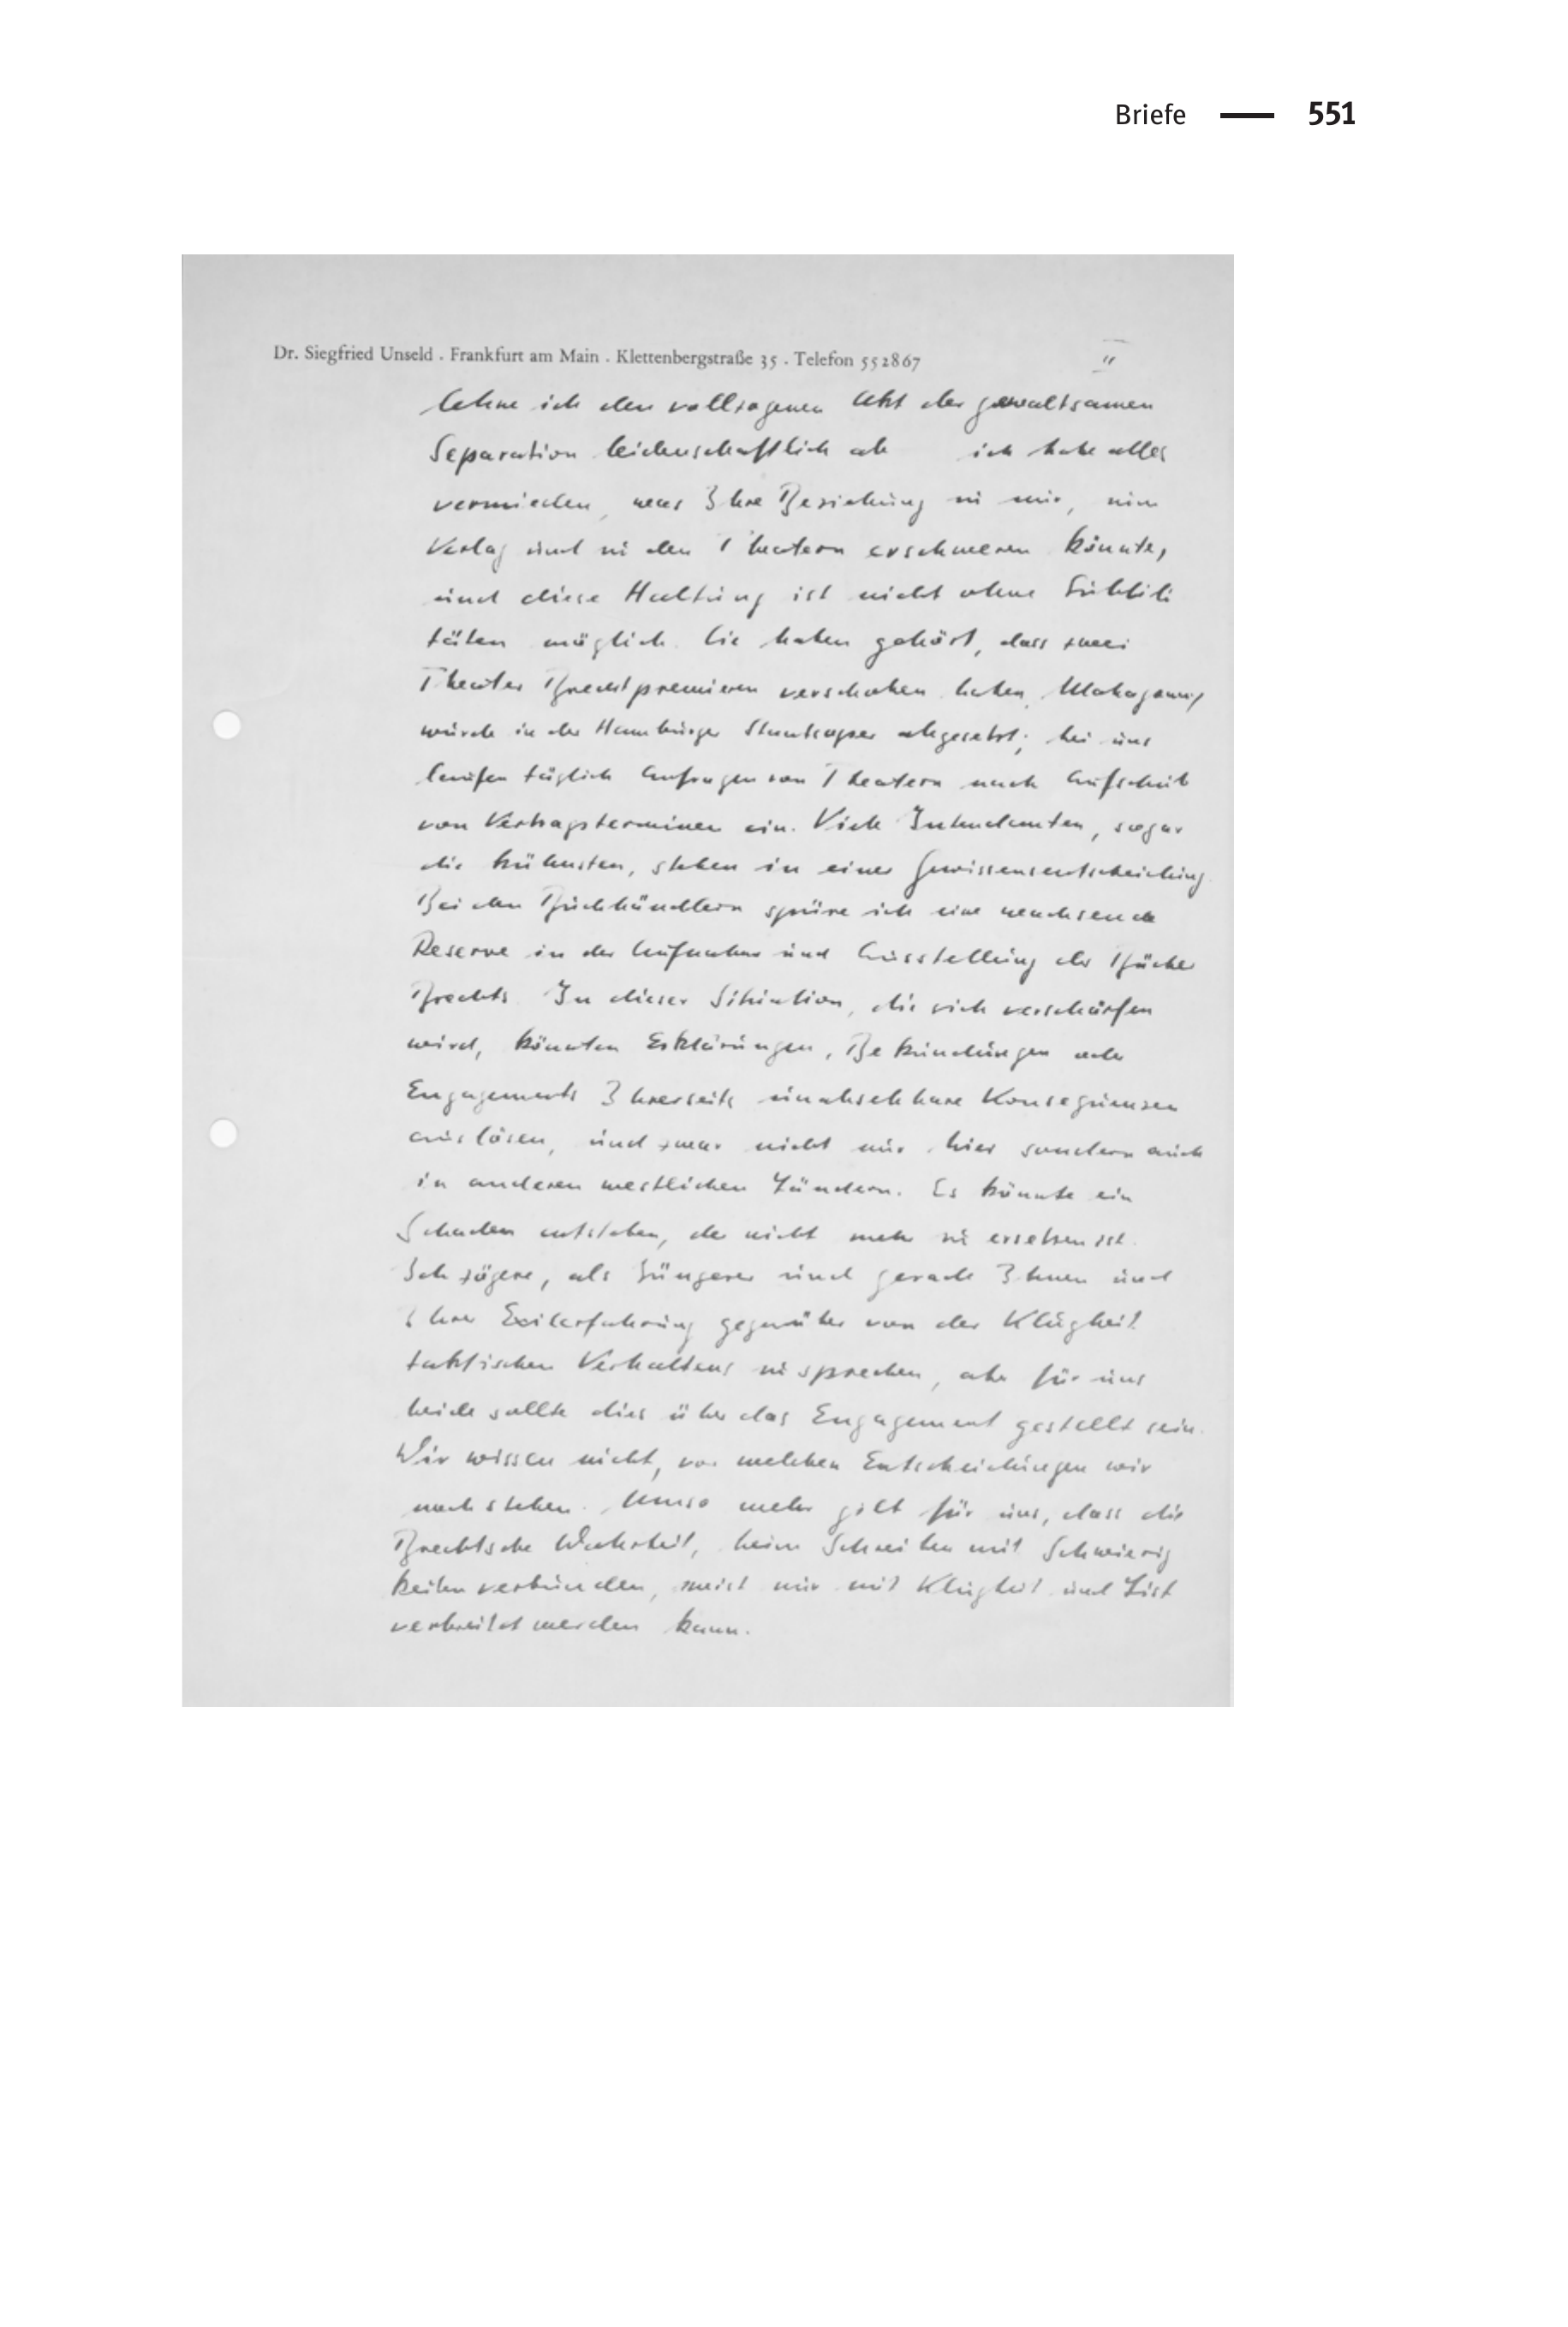 Briefe — 551
Dr. Siegfried Unseld . Frankfurt am Main . Klettenbergstraße 35 . Telefon 552867
II
lehne ich den vollzogenen Akt der gewaltsamen
Separation leidenschaftlich ab ich habe alles
vermieden, was Ihre Beziehung zu mir, zum
Verlag und zu den Theatern erschweren könnte,
und diese Haltung ist nicht ohne Subtili
täten möglich. Sie haben gehört, dass zwei
Theater Brechtpremieren verschoben haben, Mahagonny
wurde in der Hamburger Staatsoper abgesetzt; bei uns
laufen täglich Anfragen von Theatern nach Aufschub
von Vertragsterminen ein. Viele Intendanten, sogar
die kühnsten, stehen in einer Gewissensentscheidung.
Bei den Buchhändlern spüre ich eine wachsende
Reserve in der Aufnahme und Ausstellung der Bücher
Brechts. In dieser Situation, die sich verschärfen
wird, könnten Erklärungen, Bekundungen oder
Engagements Ihrerseits unabsehbare Konsequenzen
auslösen, und zwar nicht nur hier sondern auch
in anderen westlichen Ländern. Es könnte ein
Schaden entstehen, der nicht mehr zu ersetzen ist.
Ich zögere, als Jüngerer und gerade Ihnen und
Ihrer Exilerfahrung gegenüber von der Klugheit
taktischen Verhaltens zu sprechen, aber für uns
beide sollte dies über das Engagement gestellt sein.
Wir wissen nicht, vor welchen Entscheidungen wir
noch stehen. Umso mehr gilt für uns, dass die
Brechtsche Wahrheit, beim Schreiben mit Schwierig
keiten verbunden, meist nur mit Klugheit und List
verbreitet werden kann.